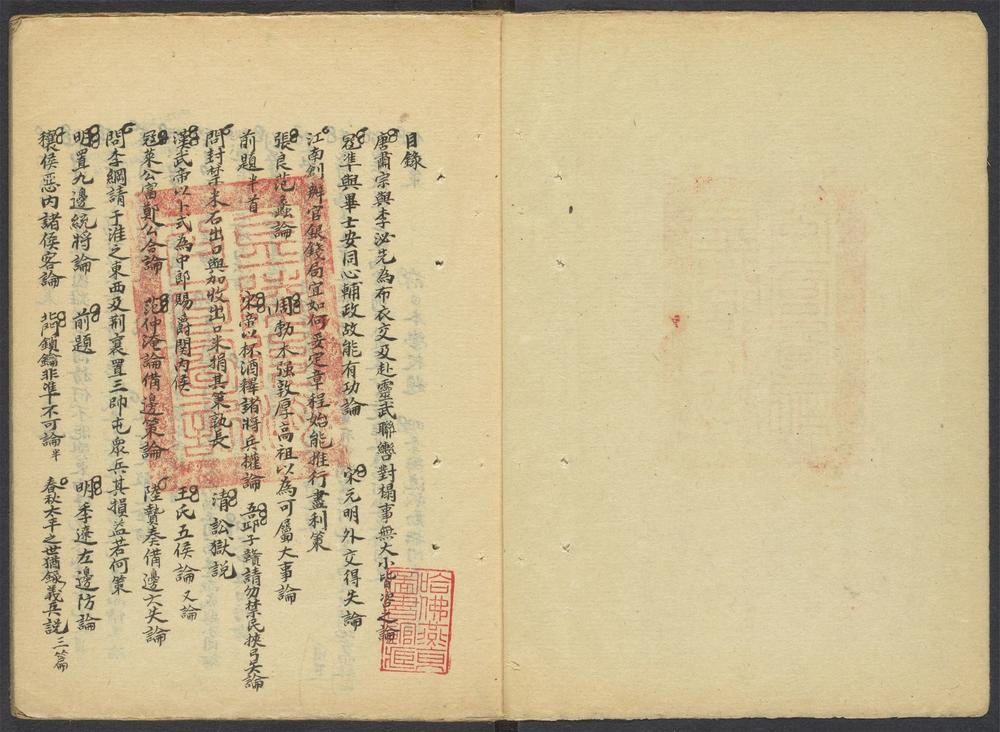 目錄
唐肅宗與李泌先為布衣交及赴靈武聯轡對榻事無大小皆咨之論
寇準與畢士安同心輔政故能有功論 宋元明外交得失論
江南創辦官銀錢局宜如何妥定章程始能推行盡利策
張良范蠡論 周勃木强敦厚高祖以為可屬大事論
前題半首 宋帝以杯酒釋諸將兵權論 吾邱子贛請勿禁民挾弓矢論
問封禁米石出口與加收出口米捐其策孰長 清訟獄說
漢武帝以卜式為中郎賜爵関內侯 王氏五侯論 又論
寇萊公富鄭公合論 范仲淹論備邊策論 陸贄奏備邊六失論
問李綱請于淮之東西及荆襄置三帥屯衆兵其損益若何策
明置九邊統將論 前題 明季遼左邊防論
穰侯惡內諸侯客論 北門鎖鑰非準不可論半 春秋太平之世猶録義兵説三篇
哈佛燕京
圖書館藏